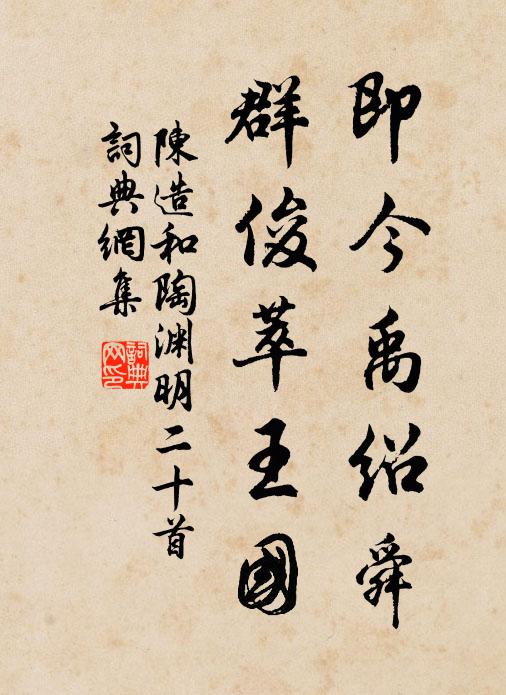 即今禹紹舜
群俊萃王國
陳造和陶淵明二十首
詞典網集
詞典網印